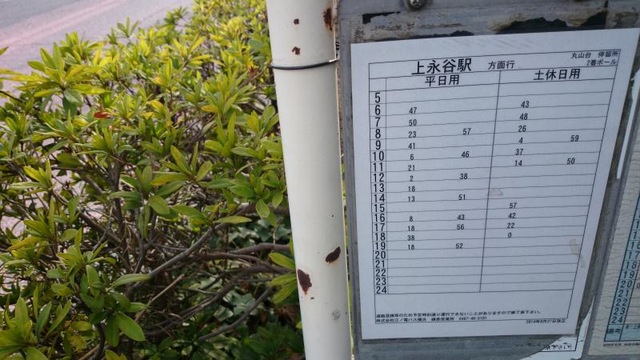 丸山台 停留所
2番ポール
上永谷駅 方面行
平日用 土休日用
5
6 47 43
7 50 48
8 23 57 26
9 41 4 59
10 6 46 37
11 21 14 50
12 2 38
13 18
14 13 51
15 57
16 8 43 42
17 18 56 22
18 38 0
19 18 52
20
21
22
23
24